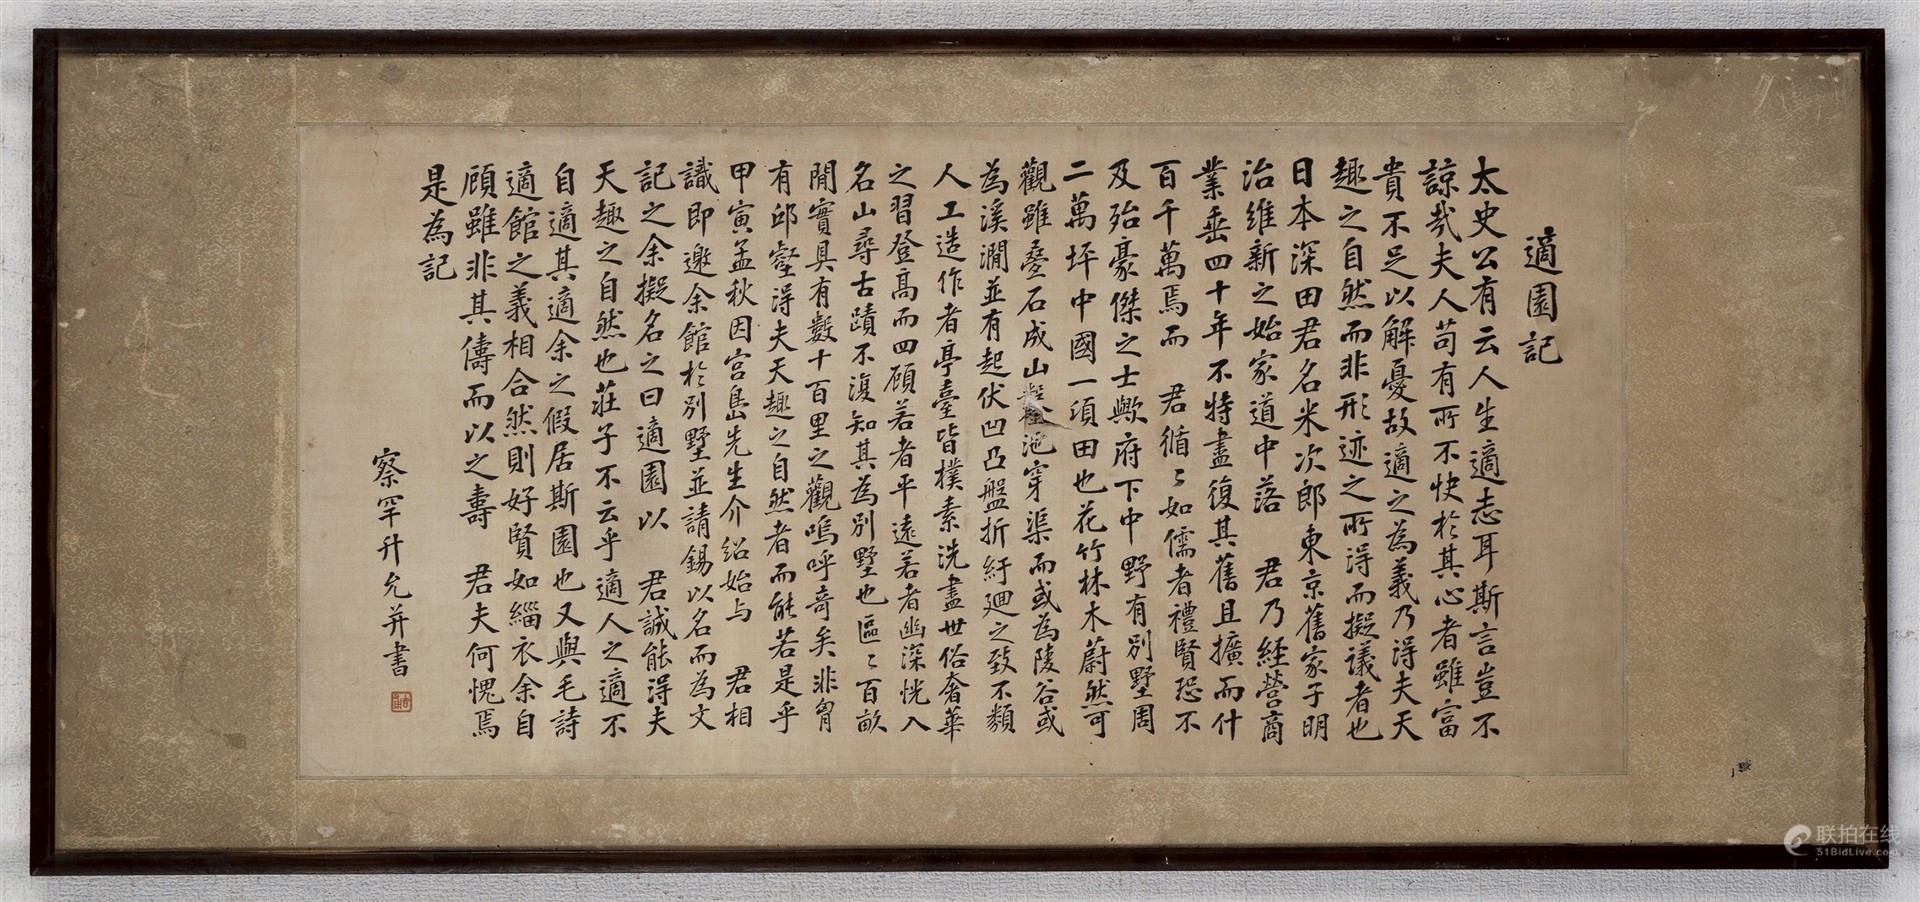 適園記
太史公有云人生適志耳斯言豈不
諒哉夫人苟有所不快於其心者雖富
貴不足以解憂故適之為義乃得夫天
趣之自然而非形迹之所得而擬議者也
日本深田君名米次郎東京舊家子明
治維新之始家道中落 君乃經營商
業垂四十年不特盡復其舊且擴而什
百千萬焉而 君循〻如儒者禮賢恐不
及殆豪傑之士歟府下中野有別墅周
二萬坪中國一頃田也花竹林木蔚然可
觀雖疊石成山鑿池穿渠而或為陵谷或
為溪澗並有起伏凹凸盤折紆迴之致不類
人工造作者亭臺皆樸素洗盡世俗奢華
之習登高而四顧若者平遠若者幽深恍入
名山尋古蹟不復知其為別墅也區〻百畝
間實具有數十百里之觀嗚呼奇矣非胷
有邱壑得夫天趣之自然者而能若是乎
甲寅孟秋因宮島先生介紹始与 君相
識即邀余館於別墅並請錫以名而為文
記之余擬名之曰適園以 君誠能得夫
天趣之自然也莊子不云乎適人之適不
自適其適余之假居斯園也又與毛詩
適館之義相合然則好賢如緇衣余自
顧雖非其儔而以之壽 君夫何愧焉
是為記
察罕升允并書
联拍在线
51BidLive.com